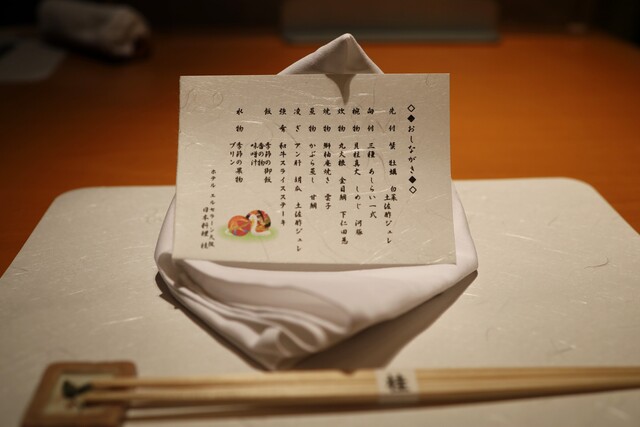 ◇◆おしながき◆◇
先付 蟹 牡蠣 白菜
土佐酢ジュレ
向付 三種 あしらい一式
椀物 貝柱真丈 しめじ
炊物 丸大根 金目鯛 下仁田葱
焼物 鰤柚庵焼き 雲子
蒸物 かぶら蒸し 甘鯛
凌ぎ アン肝 胡瓜 土佐酢ジュレ
強肴 和牛スライスステーキ
飯 季節の御飯
香の物
味噌汁
水物 季節の果物
プリン
ホテル エルセラーン大阪
日本料理 桂
桂